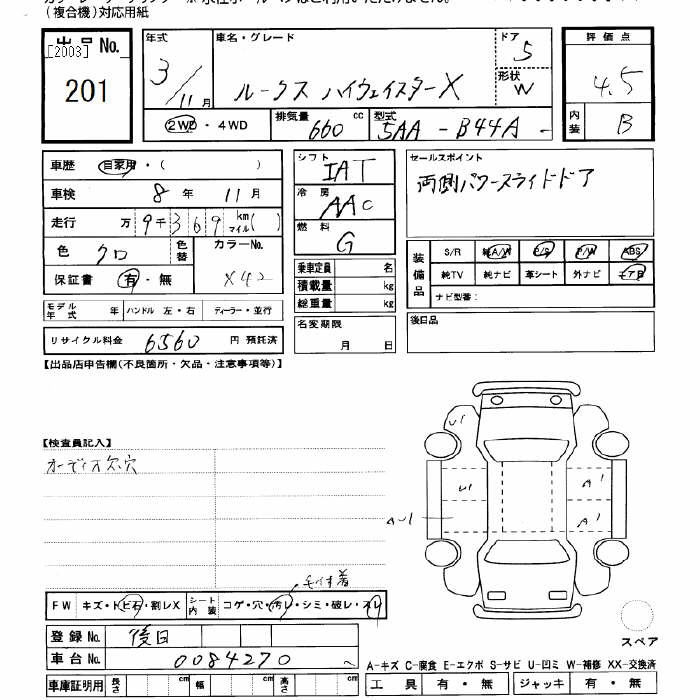 (複合機)対応用紙
出品No.
[2003]
201
年式
3/11月
車名・グレード
ルークス ハイウェイスターX
ドア
5
形状
W
評価点
4.5
内装
B
2WD・4WD
排気量
660 cc
型式
5AA - B44A -
車歴 自家用・( )
車検 8年 11月
走行 万 9千 3 6 9 km マイル( )
色 クロ
色替
カラーNo.
X42
保証書 有・無
シフト
IAT
冷房
AAC
燃料
G
乗車定員 名
積載量 kg
総重量 kg
セールスポイント
両側パワースライドドア
装備品
S/R 純A/W P/S P/W ABS
純TV 純ナビ 革シート 外ナビ エアB
ナビ型番:
モデル年式 年 ハンドル 左・右 ディーラー・並行
リサイクル料金 6560 円 預託済
名変期限
月 日
後日品
【出品店申告欄(不良箇所・欠品・注意事項等)】
【検査員記入】
オーディオ欠、穴
U1
U1
A1
A1
AU1
FW キズ・トビ石・割レX
シート内装 コゲ・穴・汚レ・シミ・破レ・スレ
登録No. 後日
車台No. 0084270
車庫証明用 長さ cm 幅 cm 高さ cm
スペア
A-キズ C-腐食 E-エクボ S-サビ U-凹ミ W-補修 XX-交換済
工具 有・無 ジャッキ 有・無